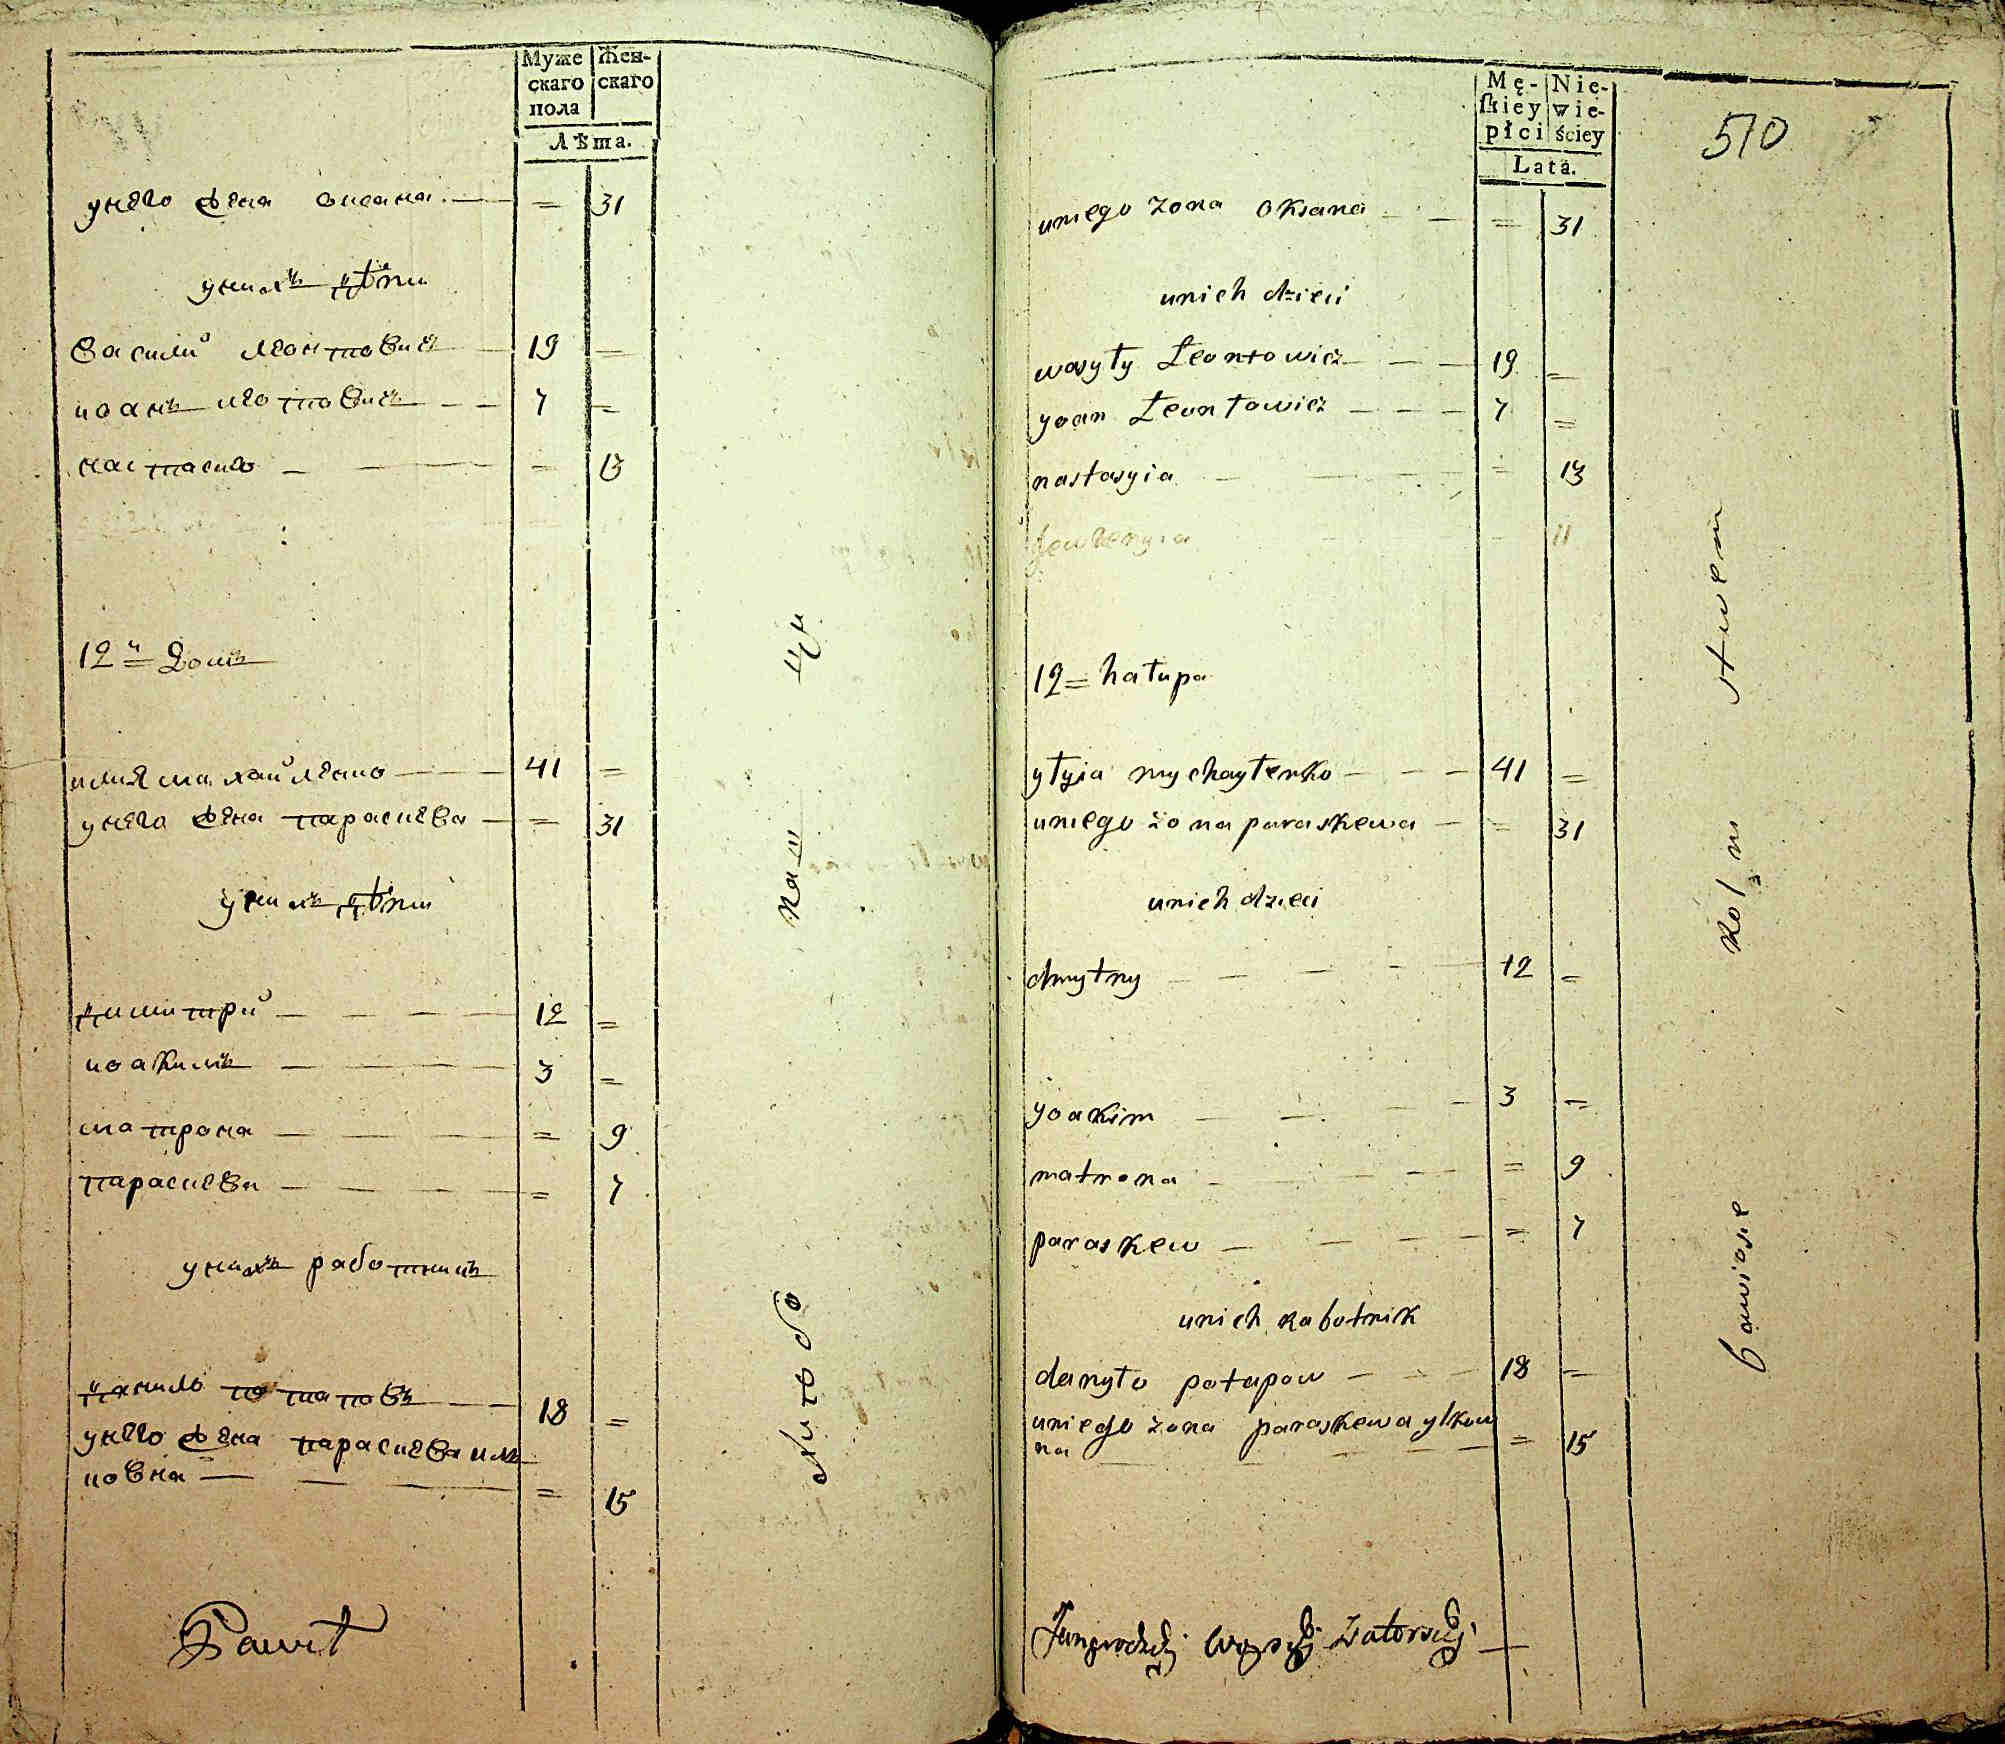 Муже
скаго
пола
Жен-
скаго
Лѣта.
унего жена оксана — = 31
унихъ дѣти
василий леонтовичъ — 19 =
иоанъ леонтовичъ — — 7 =
настасия — — = 13
12й = домъ
илия михайленко — — 41 =
унего жена параскева — = 31
унихъ дѣти
димитрий — — — — 12 =
иоакимъ — — — — 3 =
матрона — — — — = 9
параскева — — — — = 7
унихъ работникъ
данило потаповъ — — 18 =
унего жена параскева иль
ковна — — — = 15
Paweł
Mę-
skiey
płci
Nie-
wie-
ściey
Lata.
510
uniego zona oksana — — = 31
unich dzieci
wasyły Leontowicz — — — 19 =
yoan Leontowicz — — — 7 =
nastasyia — — — = 13
11
12 = hałupa
yłyia mychayłenko — — — 41 =
uniego zona paraskewa — = 31
unich dzieci
dmytry — — — — 12 =
yoakim — — — — 3 =
matrona — — — — = 9
paraskew — — — — = 7
unich rabotnik
danyło potapow — — — 18 =
uniego zona paraskewa ylkow
na — — — — = 15